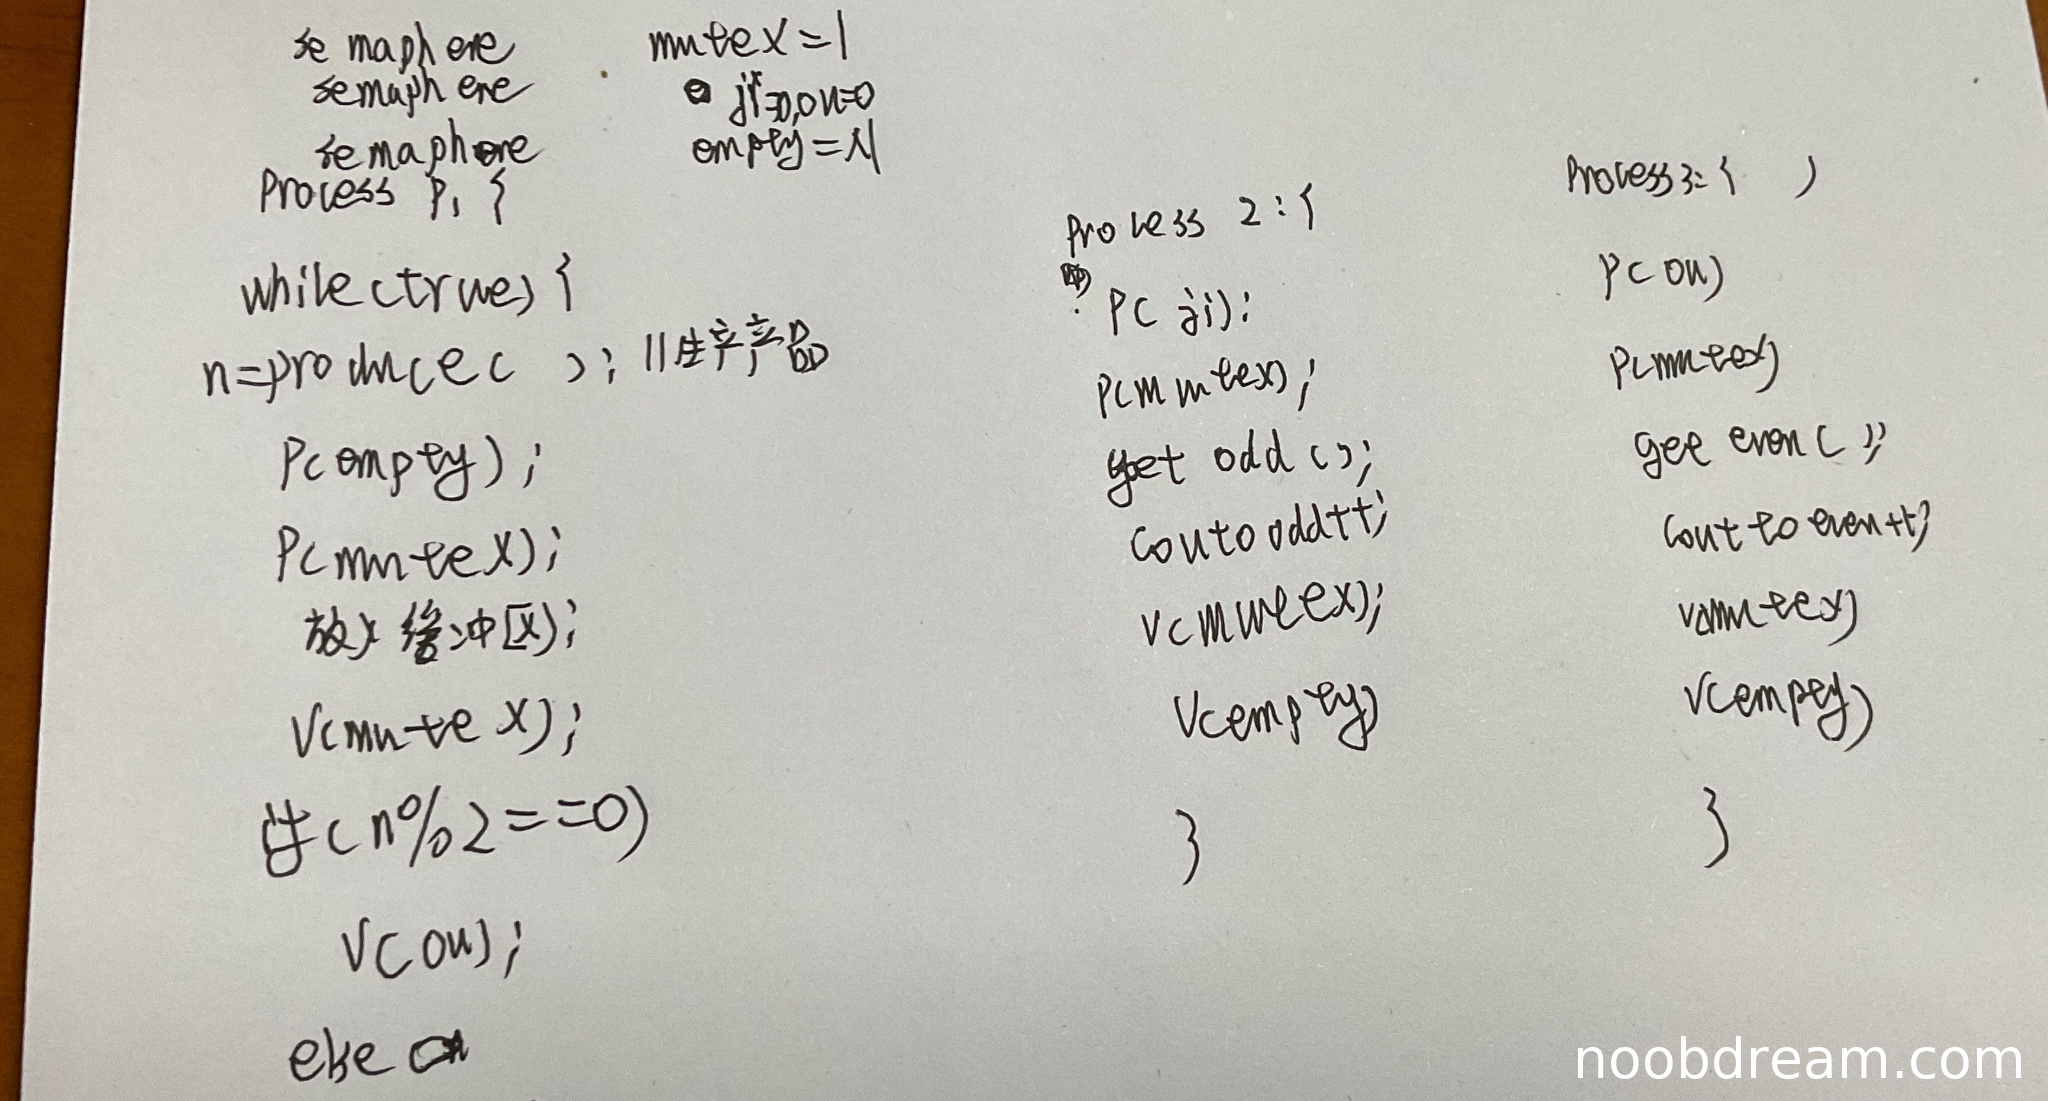 semaphere mutex=1
semaphere ji=0,ou=0
semaphore empty=N
Process P1 {
while(true){
n=produce( ); //生产产品
P(empty);
P(mutex);
放入缓冲区);
V(mutex);
if(n%2==0)
V(ou);
else
Process 2:{
P(ji);
P(mutex);
get odd();
coutoodd++;
V(mutex);
V(empty)
}
Process3:{ )
P(ou)
P(mutex)
get even( );
countoeven++;
V(mutex)
V(empty)
}
noobdream.com